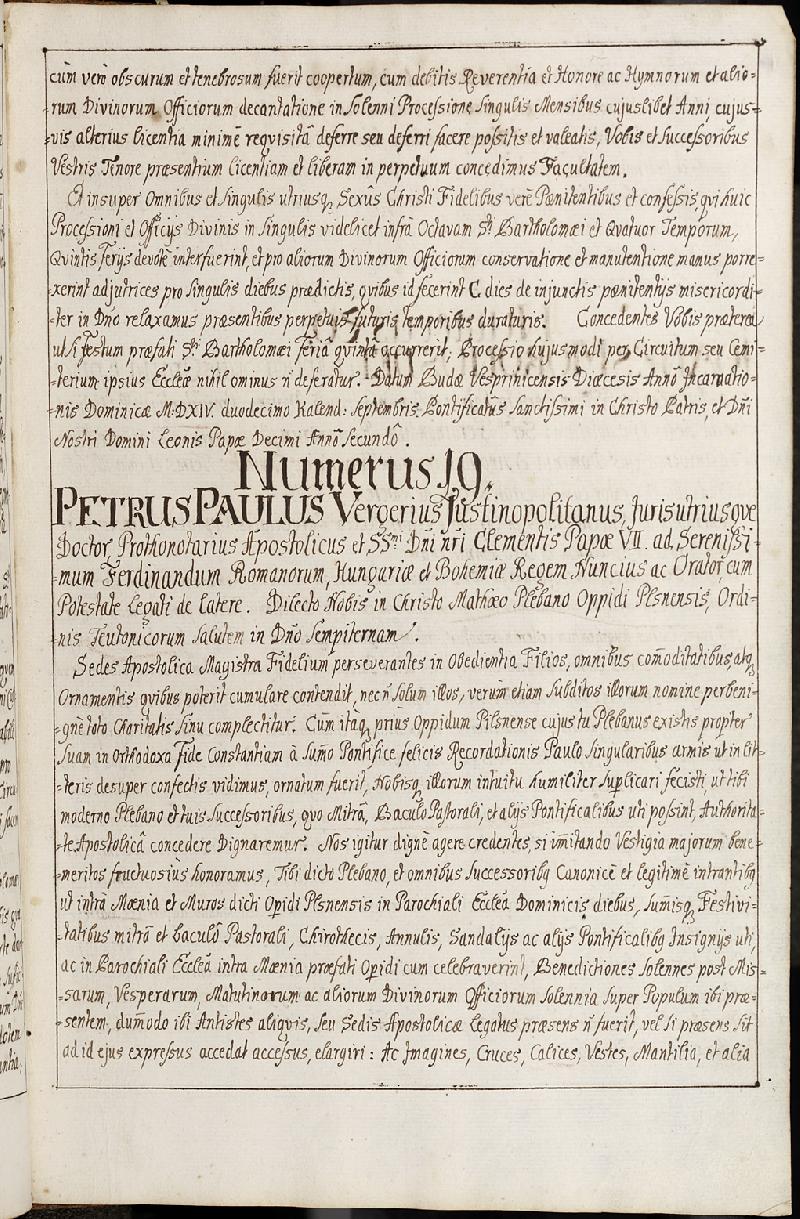 cùm verò obscurum et tenebrosum fuerit coopertum, cum debitis Reverentia et Honore ac Hymnorum et alio-
rum Divinorum Officiorum decantatione in solenni Processione singulis Mensibus cujuslibet Anni cujus-
vis alterius licentia minimè reqvisitâ deferre seu deferri facere possitis et valeatis, Vobis et Successoribus
Vestris Tenore præsentium licentiam et liberam in perpetuum concedimus Facultatem.
Et insuper Omnibus et singulis utriusq, Sexûs Christi Fidelibus verè Pœnitentibus et confessis, qvi huic
Processioni et Officijs Divinis in singulis videlicet infrà Octavam Sti Bartholomæi et Qvatuor Temporum,
Qvintis Ferijs devotè interfuerint, et pro aliorum Divinorum Officiorum conservatione et manutentione manus porre-
xerint adjutrices pro singulis diebus prædictis, qvibus id fecerint C. dies de injunctis pœnitentijs misericordi-
ter in Dño relaxamus præsentibus perpetuis futuris temporibus duraturis. Concedentes Vobis præterea
ut si festum præfati Sti Bartholomæi feriâ qvintâ occurrerit, Processio hujusmodi per Circuitum seu Cemi-
terium ipsius Eccleæ nihil ominus ñ deferatur. Datum Budæ Vesprinicensis Diœcesis Annô Incarnatio-
nis Dominicæ M.DXIV. duodecimo Kalend: Septembris, Pontificatûs Sanctissimi in Christo Patris, et Dñi
Nostri Domini Leonis Papæ Decimi Annô Secundô.
Numerus 19.
PETRUS PAULUS Vergerius Justinopolitanus, Juris utriusqve
Doctor, Prothonotarius Apostolicus et SSmi Dñi nri Clementis Papæ VII. ad Serenissi-
mum Ferdinandum Romanorum, Hungariæ et Bohemiæ Regem Nuncius ac Orator, cum
Potestate Legati de latere. Dilecto Nobis in Christo Mathæo Plebano Oppidi Plsnensis, Ordi-
nis Teutonicorum Salutem in Dño Sempiternam.
Sedes Apostolica Magistra Fidelium perseverantes in Obedientia Filios, omnibus comoditatibus, atq,
Ornamentis qvibus poterit cumulare contendit, nec ñ solum illos, verùm etiam Subditos illorum nomine perbeni-
gnè toto Charitatis Sinu complectitur. Cùm itaq, priùs Oppidum Pilsnense cujus tu Plebanus existis propter
Suam in Orthodoxa Fide Constantiam â Sumo Pontifice felicis Recordationis Paulo Singularibus armis ut in lit-
teris desuper confectis vidimus, ornatum fuerit, Nobisq, illorum intuitu humiliter Suplicari fecisti, ut tibi
moderno Plebano et tuis Successoribus, qvo Mitrâ, Baculo Pastorali, et alijs Pontificalibus uti possint, Authorita-
te Apostolicâ concedere Dignaremur. Nos igitur dignè agere credentes, si imitando Vestigia majorum bene-
meritos fructuosiùs honoramus, Tibi dicto Plebano, et omnibus Successoribq Canonicè et legitimè intrantibq
ut intrà Mœnia et Muros dicti Opidi Plsnensis in Parochiali Eccleâ Dominicis diebus, sumisq, Festivi-
tatibus mitrâ et baculô Pastorali, Chirothecis, Annulis, Sandalijs ac alijs Pontificalibq Insignijs uti,
ac in Parochiali Eccleâ intra Mœnia præfati Opidi cum celebraverint, Benedictiones solennes post Mis-
sarum, Vesperarum, Matutinarum ac aliorum Divinorum Officiorum solennia super Populum ibi præ-
sentem, dumodo ibi Antistes aliqvis, seu Sedis Apostolicæ Legatus præsens ñ fuerit, vel si præsens sit
ad id ejus expressus accedat accessus, elargiri: Ac Imagines, Cruces, Calices, Vestes, Mantilia, et alia